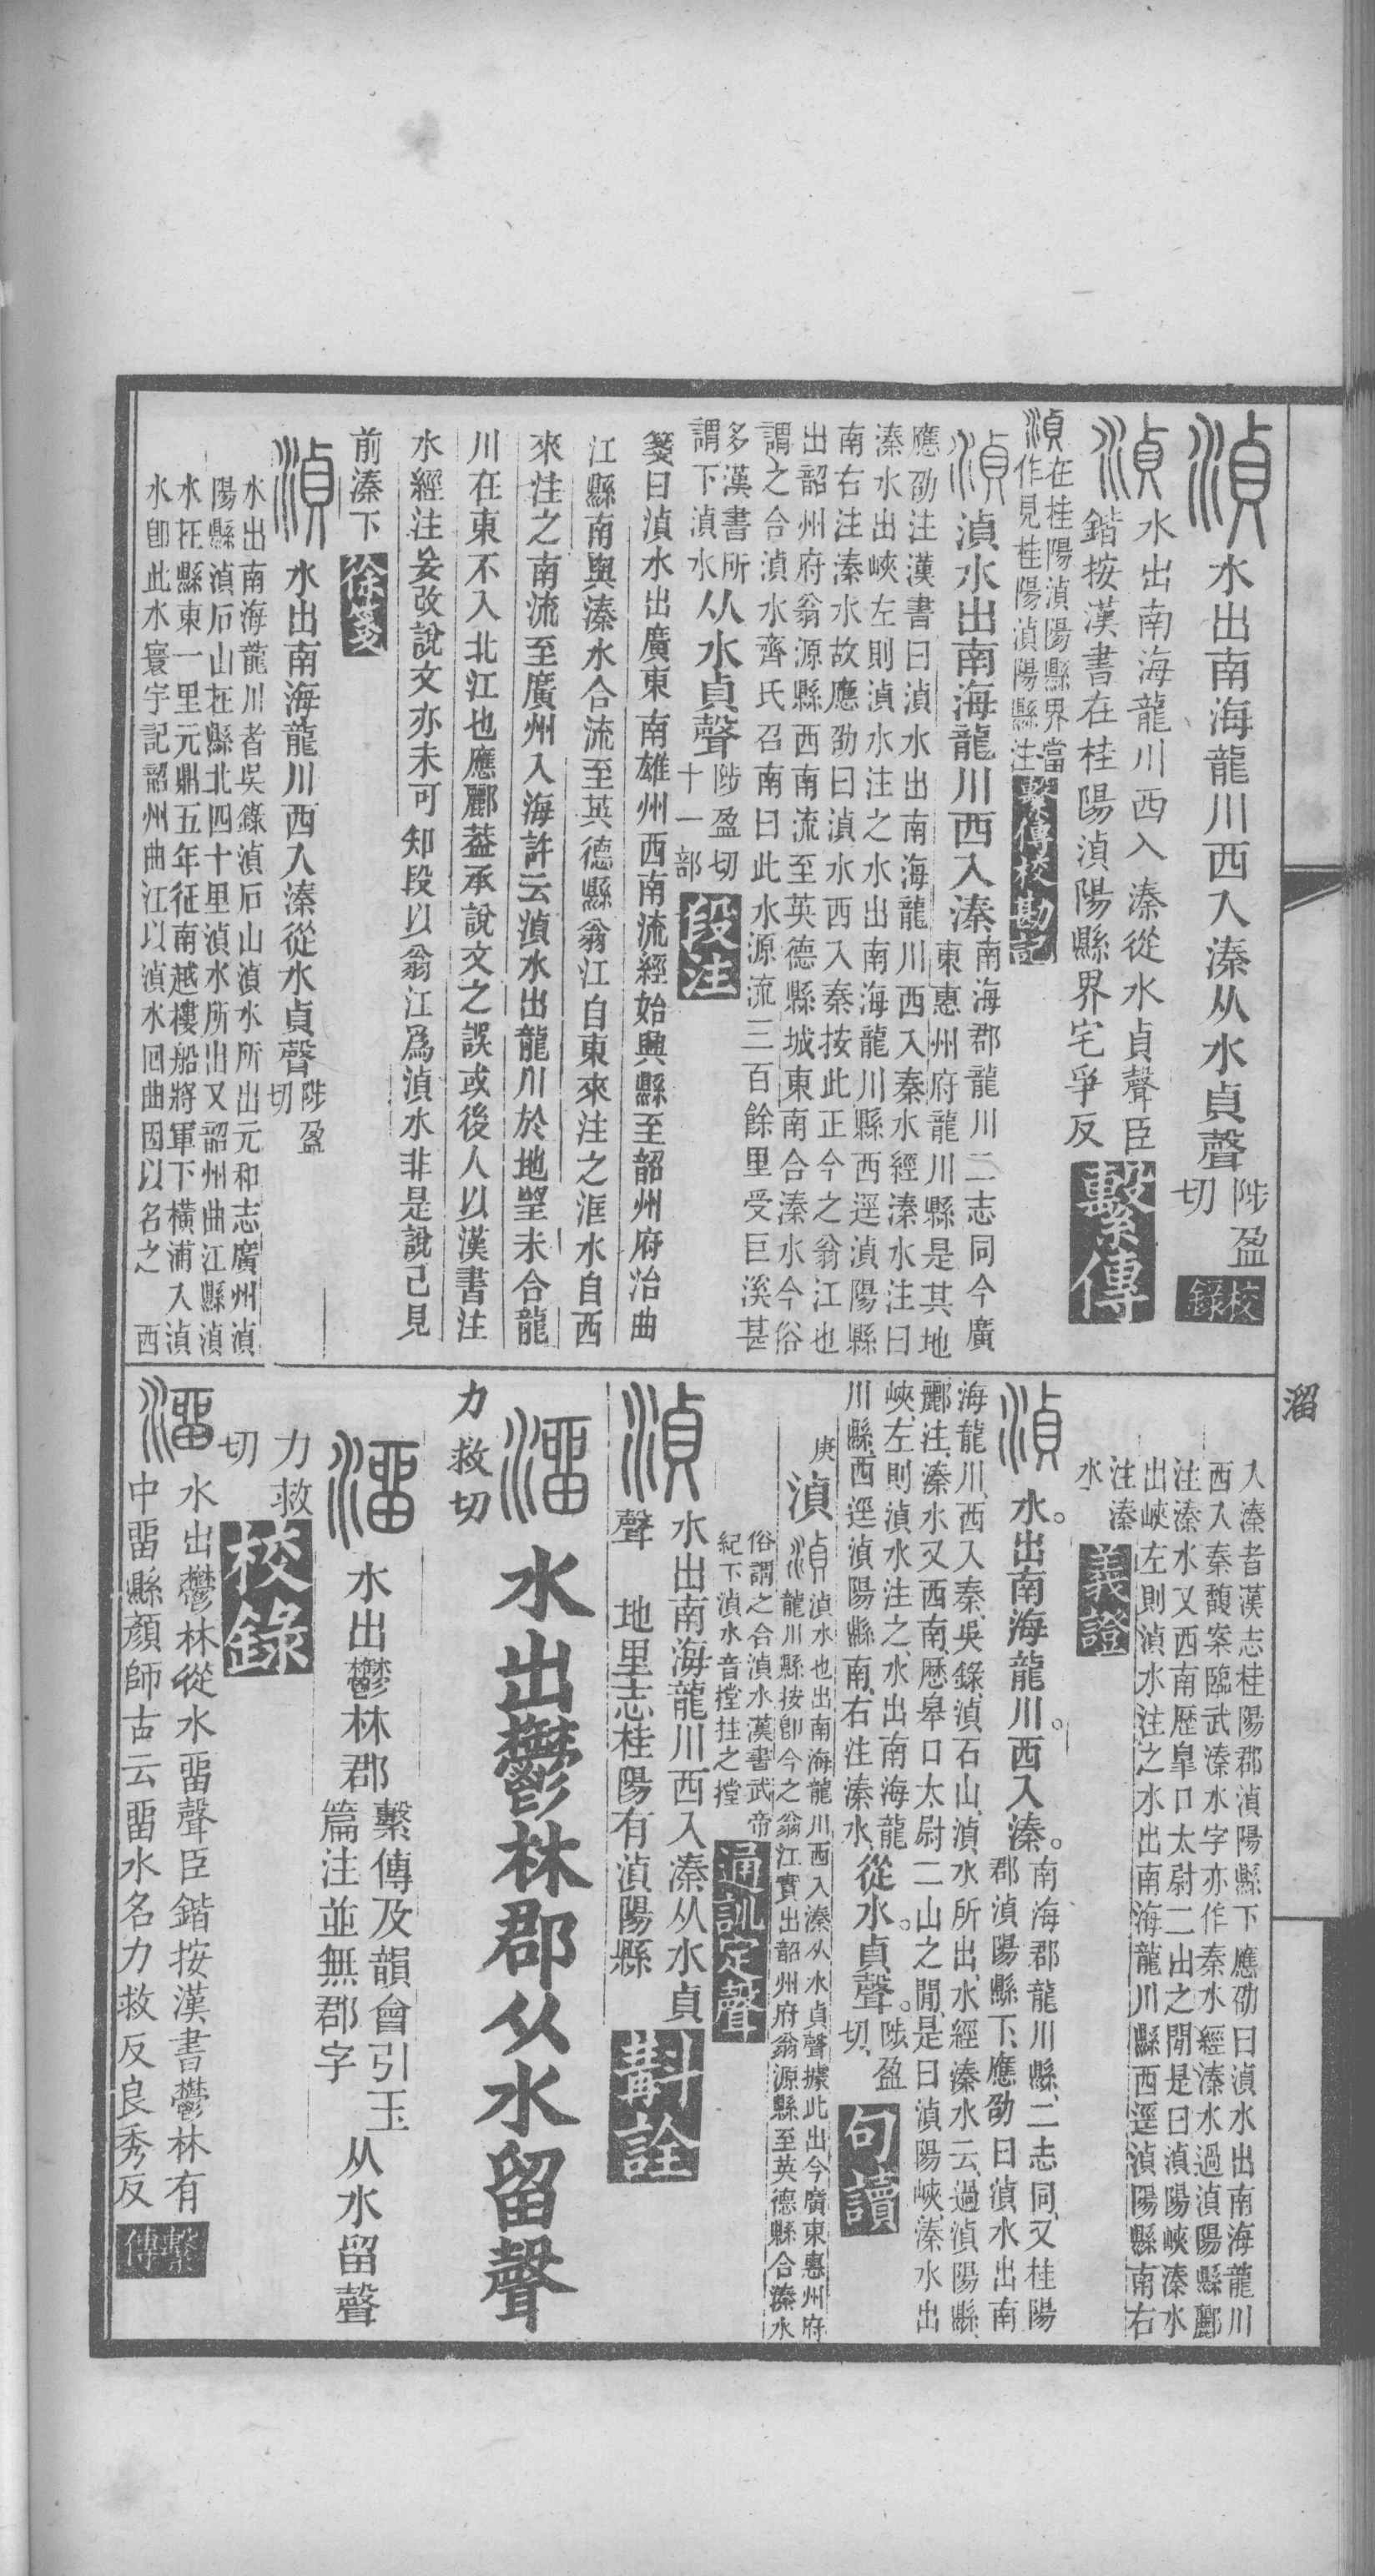 湞水出南海龍川西入溱从水貞聲陟盈切校錄
湞水出南海龍川西入溱從水貞聲臣
鍇按漢書在桂陽湞陽縣界宅爭反繫傳
湞在桂陽湞陽縣界當
作見桂陽湞陽縣注繫傳校勘記
湞湞水出南海龍川西入溱南海郡龍川二志同今廣
東惠州府龍川縣是其地
應劭注漢書曰湞水出南海龍川西入秦水經溱水注曰
溱水出峽左則湞水注之水出南海龍川縣西逕湞陽縣
南右注溱水故應劭曰湞水西入秦按此正今之翁江也
出韶州府翁源縣西南流至英德縣城東南合溱水今俗
謂之合湞水齊氏召南曰此水源流三百餘里受巨溪甚
多漢書所
謂下湞水从水貞聲陟盈切
十一部段注
箋曰湞水出廣東南雄州西南流經始興縣至韶州府治曲
江縣南與溱水合流至英德縣翁江自東來注之洭水自西
來注之南流至廣州入海許云湞水出龍川於地望未合龍
川在東不入北江也應酈葢承說文之誤或後人以漢書注
水經注妄改說文亦未可知段以翁江爲湞水非是說已見
前溱下徐箋
湞水出南海龍川西入溱從水貞聲陟盈
切
水出南海龍川者吳錄湞石山湞水所出元和志廣州湞
陽縣湞石山在縣北四十里湞水所出又韶州曲江縣湞
水在縣東一里元鼎五年征南越樓船將軍下橫浦入湞
水卽此水寰宇記韶州曲江以湞水回曲因以名之　西
溜
入溱者漢志桂陽郡湞陽縣下應劭曰湞水出南海龍川
西入秦馥案臨武溱水字亦作秦水經溱水過湞陽縣酈
注溱水又西南歷皐口太尉二山之閒是曰湞陽峽溱水
出峽左則湞水注之水出南海龍川縣西逕湞陽縣南右
注溱
水義證
湞水出南海龍川西入溱南海郡龍川縣二志同又桂陽
郡湞陽縣下應劭曰湞水出南
海龍川西入秦吳錄湞石山湞水所出水經溱水云過湞陽縣
酈注溱水又西南歷皋口太尉二山之閒是曰湞陽峽溱水出
峽左則湞水注之水出南海龍
川縣西逕湞陽縣南右注溱水從水貞聲陟盈
切句讀
庚湞湞湞水也出南海龍川西入溱从水貞聲據此出今廣東惠州府
龍川縣按卽今之翁江實出韶州府翁源縣至英德縣合溱水
俗謂之合湞水漢書武帝
紀下湞水音摚拄之摚通訓定聲
湞水出南海龍川西入溱从水貞
聲　地里志桂陽有湞陽縣斠詮
溜水出鬱林郡从水留聲
力救切
溜水出鬱林郡繫傳及韻會引玉
篇注並無郡字从水留聲
力救
切校錄
溜水出鬱林從水畱聲臣鍇按漢書鬱林有
中畱縣顏師古云畱水名力救反良秀反繫傳